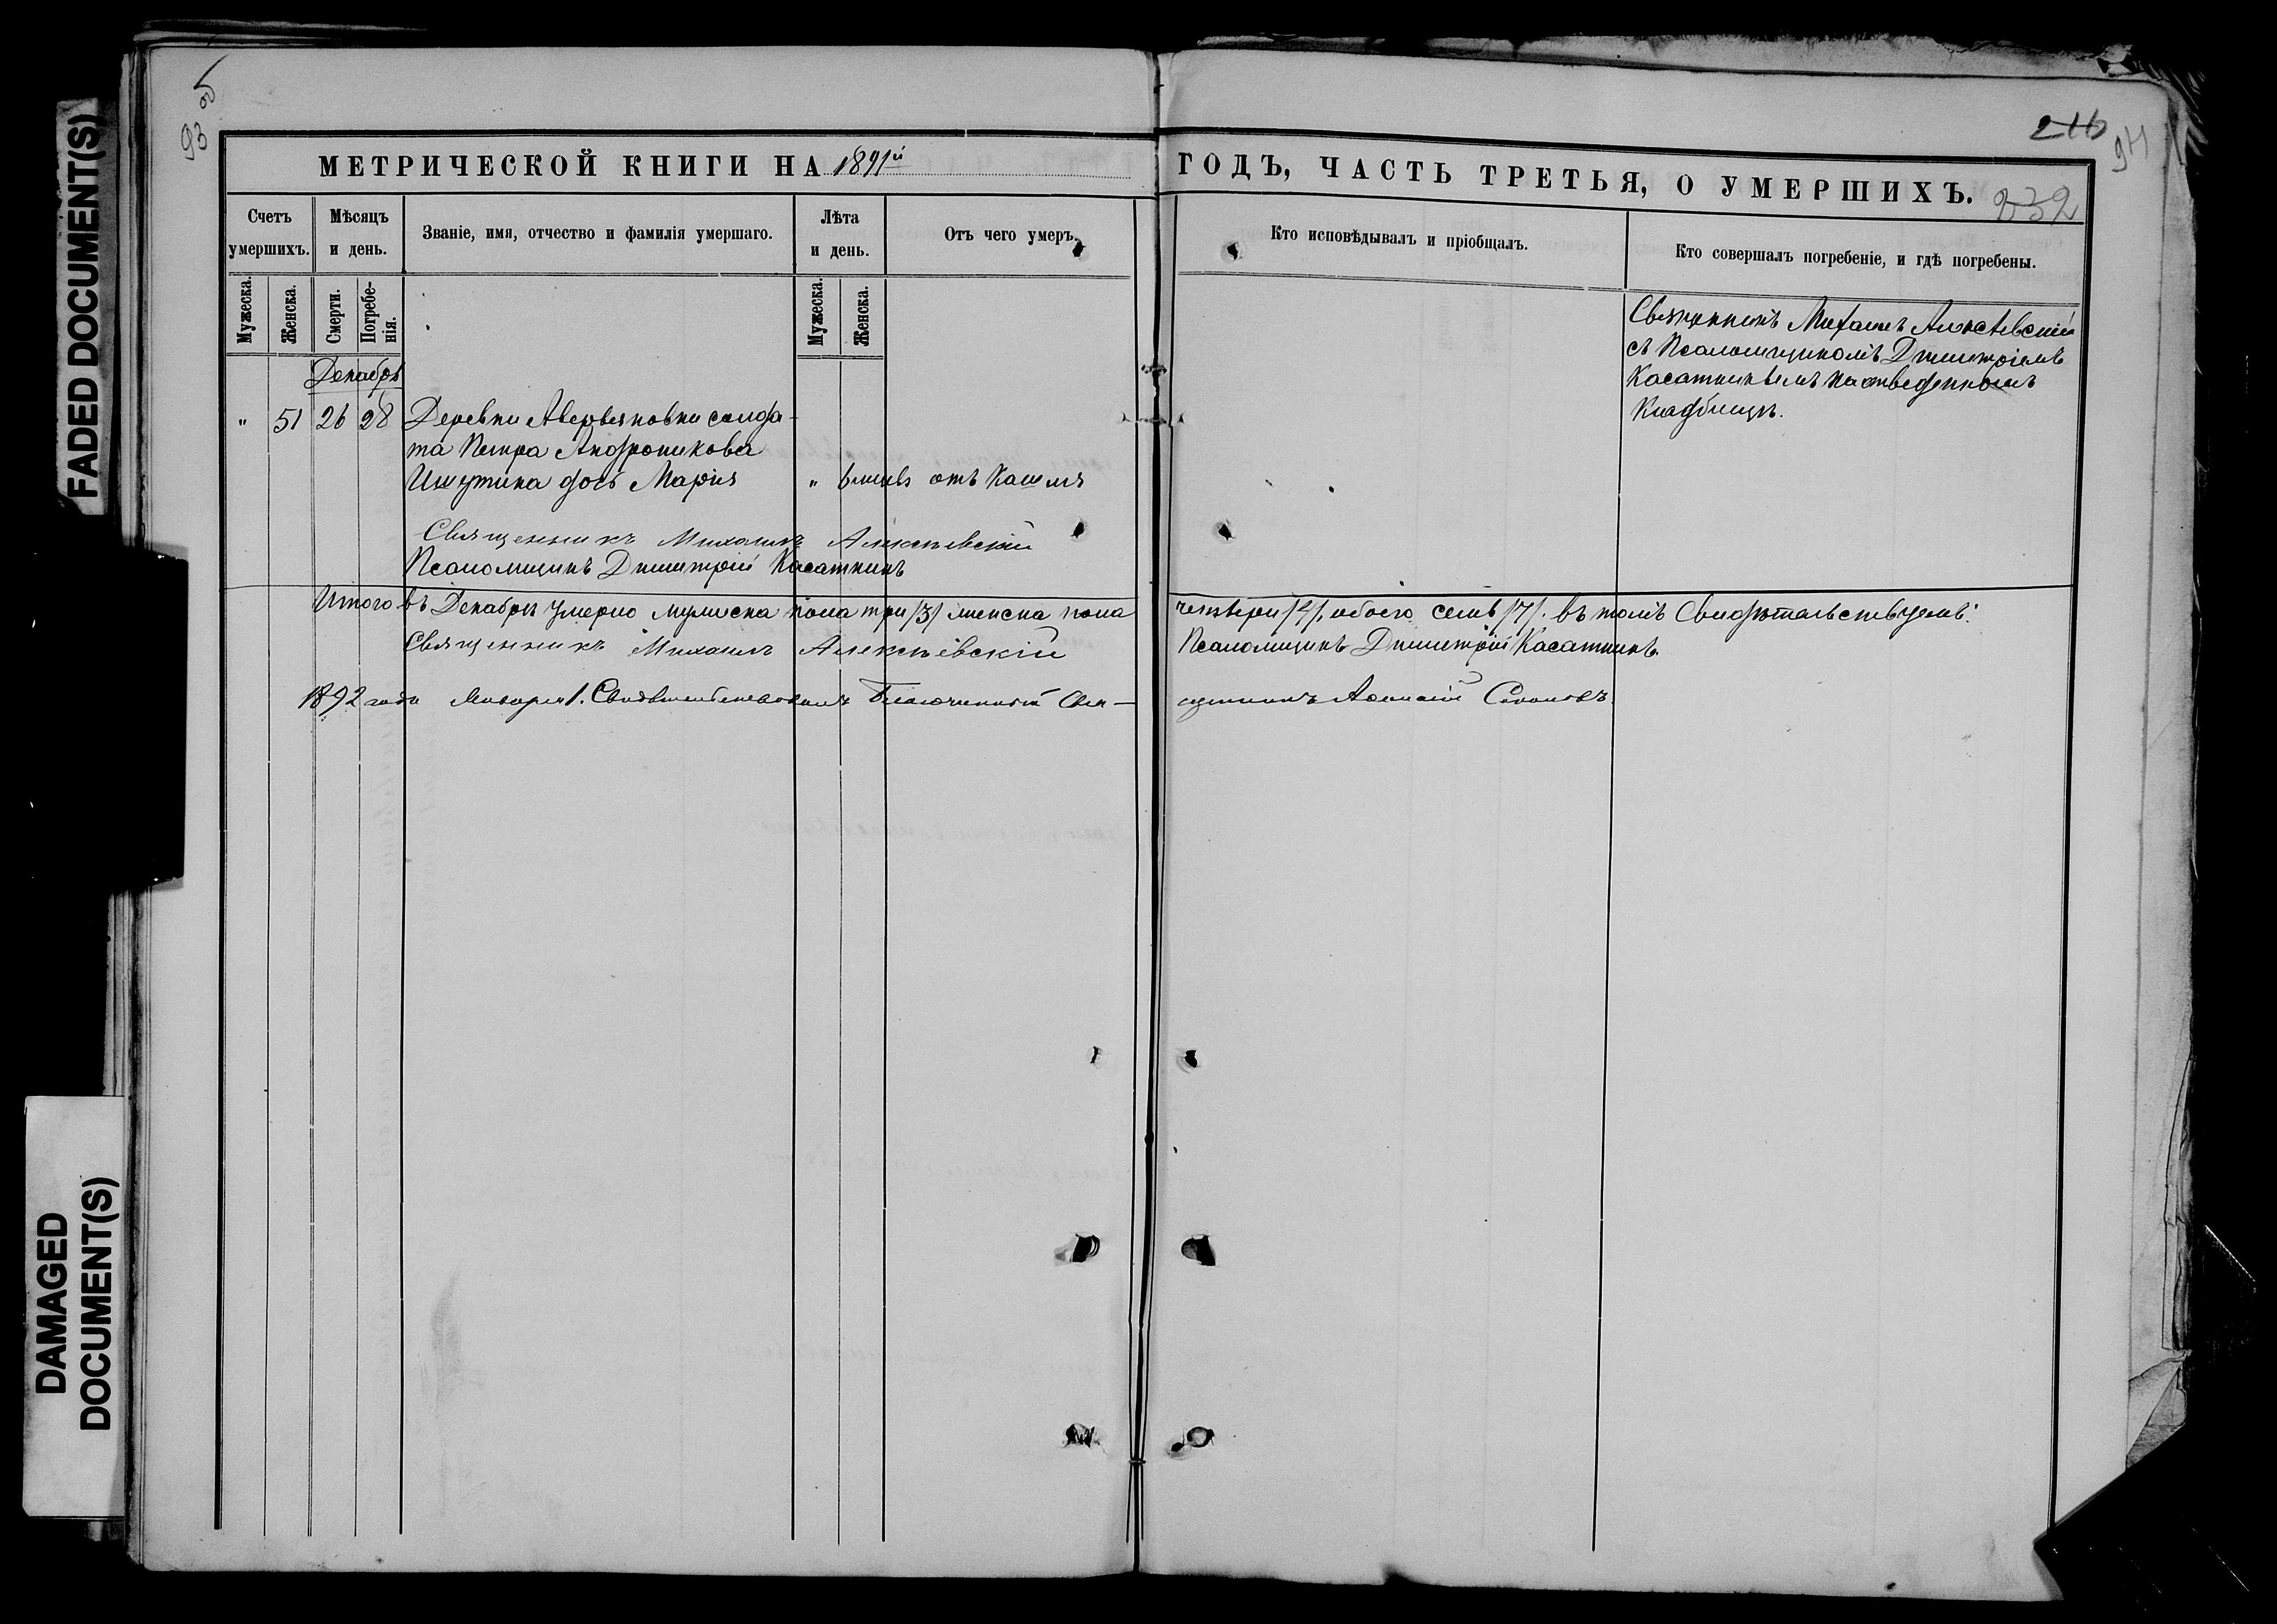 FADED DOCUMENT(S)
DAMAGED
DOCUMENT(S)
93 об
216
94
232
МЕТРИЧЕСКОЙ КНИГИ НА 1891й ГОДЪ, ЧАСТЬ ТРЕТЬЯ, О УМЕРШИХЪ.
Счетъ умершихъ.
Мѣсяцъ и день.
Званіе, имя, отчество и фамилія умершаго.
Лѣта и день.
Отъ чего умеръ.
Кто исповѣдывалъ и пріобщалъ.
Кто совершалъ погребеніе, и гдѣ погребены.
Мужеска.
Женска.
Смерти.
Погребе-
нія.
Мужеска.
Женска.
Декабрь
" 51 26 28 Деревни Аверьяновки солда-
та Петра Андроникова
Ишутина дочь Марія " 6 отъ Кашля
Священникъ Михаилъ Алексѣевскій
съ Псаломщикомъ Димитріемъ
Касаткинымъ на отведенномъ
Кладбищѣ.
Священникъ Михаилъ Алексѣевскій
Псаломщикъ Димитрій Касаткинъ
Итого въ Декабрѣ умерло мужеска пола три /3/ женска пола четыри /4/, обоего семь /7/. въ томъ Свидѣтельствуемъ:
Священникъ Михаилъ Алексѣевскій Псаломщикъ Димитрій Касаткинъ.
1892 года Января 1. Свидѣтельствовалъ Благочинный Свя-
щенникъ